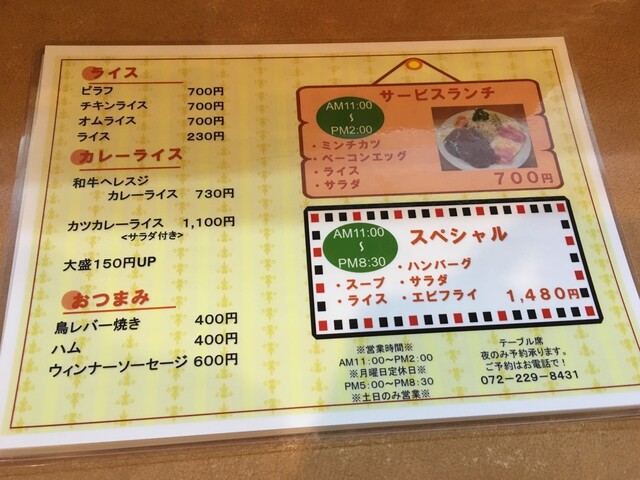 ライス
ピラフ 700円
チキンライス 700円
オムライス 700円
ライス 230円
カレーライス
和牛ヘレスジ
カレーライス 730円
カツカレーライス 1,100円
<サラダ付き>
大盛150円UP
おつまみ
鳥レバー焼き 400円
ハム 400円
ウィンナーソーセージ 600円
サービスランチ
AM11:00
~
PM2:00
・ミンチカツ
・ベーコンエッグ
・ライス
・サラダ
700円
スペシャル
AM11:00
~
PM8:30
・ハンバーグ
・スープ ・サラダ
・ライス ・エビフライ 1,480円
※営業時間※
AM11:00~PM2:00
※月曜日定休日※
PM5:00~PM8:30
※土日のみ営業※
テーブル席
夜のみ予約承ります。
ご予約はお電話で!
072-229-8431